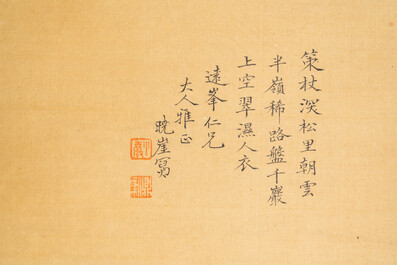 策杖深松里朝雲
半嶺稀路盤千巖
上空翠濕人衣
遠峯仁兄
大人雅正
曉崖寫